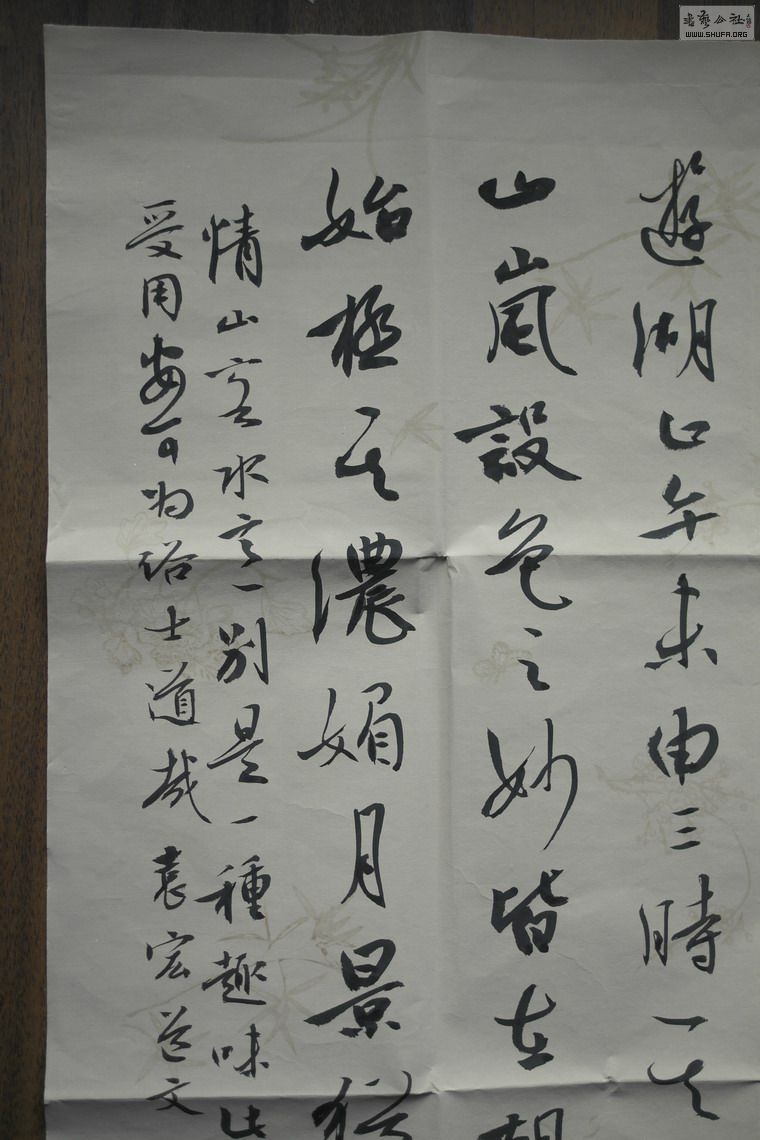 遊湖止午未申三時其
山嵐設色之妙皆在朝
始極其濃媚月景猶
情山容水意別是一種趣味此
受用安可為俗士道哉 袁宏道文
書藝公社
WWW.SHUFA.ORG